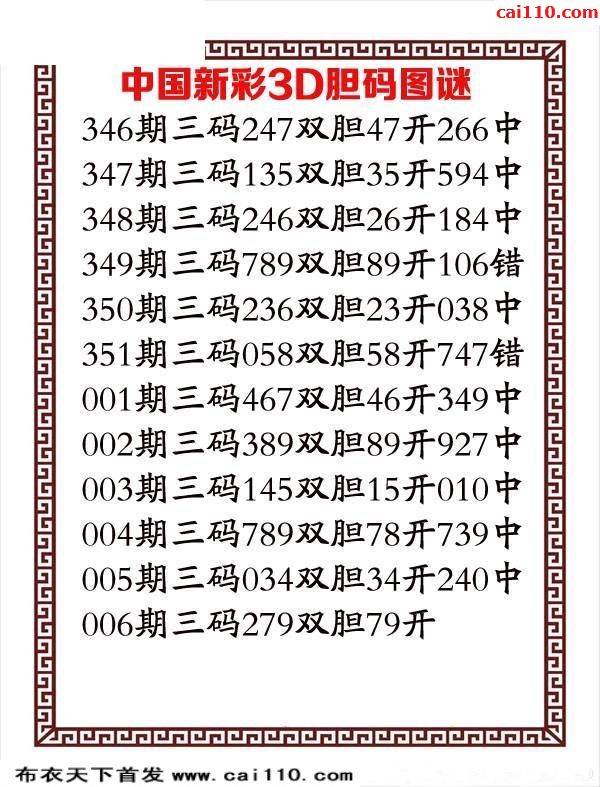 cai110.com
中国新彩3D胆码图谜
346期三码247双胆47开266中
347期三码135双胆35开594中
348期三码246双胆26开184中
349期三码789双胆89开106错
350期三码236双胆23开038中
351期三码058双胆58开747错
001期三码467双胆46开349中
002期三码389双胆89开927中
003期三码145双胆15开010中
004期三码789双胆78开739中
005期三码034双胆34开240中
006期三码279双胆79开
布衣天下首发 www.cai110.com